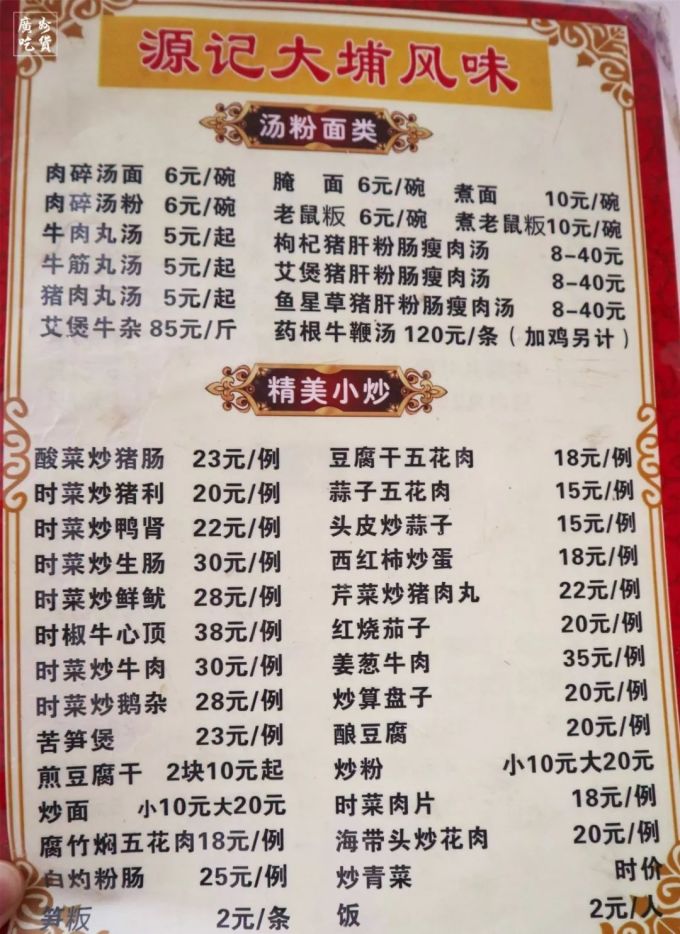 廣州
吃貨
源记大埔风味
汤粉面类
肉碎汤面 6元/碗
肉碎汤粉 6元/碗
牛肉丸汤 5元/起
牛筋丸汤 5元/起
猪肉丸汤 5元/起
艾煲牛杂 85元/斤
腌 面 6元/碗 煮面 10元/碗
老鼠粄 6元/碗 煮老鼠粄10元/碗
枸杞猪肝粉肠瘦肉汤 8-40元
艾煲猪肝粉肠瘦肉汤 8-40元
鱼星草猪肝粉肠瘦肉汤 8-40元
药根牛鞭汤 120元/条（加鸡另计）
精美小炒
酸菜炒猪肠 23元/例
时菜炒猪利 20元/例
时菜炒鸭肾 22元/例
时菜炒生肠 30元/例
时菜炒鲜鱿 28元/例
时椒牛心顶 38元/例
时菜炒牛肉 30元/例
时菜炒鹅杂 28元/例
苦笋煲 23元/例
煎豆腐干 2块10元起
炒面 小10元大20元
腐竹焖五花肉18元/例
白灼粉肠 25元/例
笋粄 2元/条
豆腐干五花肉 18元/例
蒜子五花肉 15元/例
头皮炒蒜子 15元/例
西红柿炒蛋 18元/例
芹菜炒猪肉丸 22元/例
红烧茄子 20元/例
姜葱牛肉 35元/例
炒算盘子 20元/例
酿豆腐 20元/例
炒粉 小10元大20元
时菜肉片 18元/例
海带头炒花肉 20元/例
炒青菜 时价
饭 2元/人